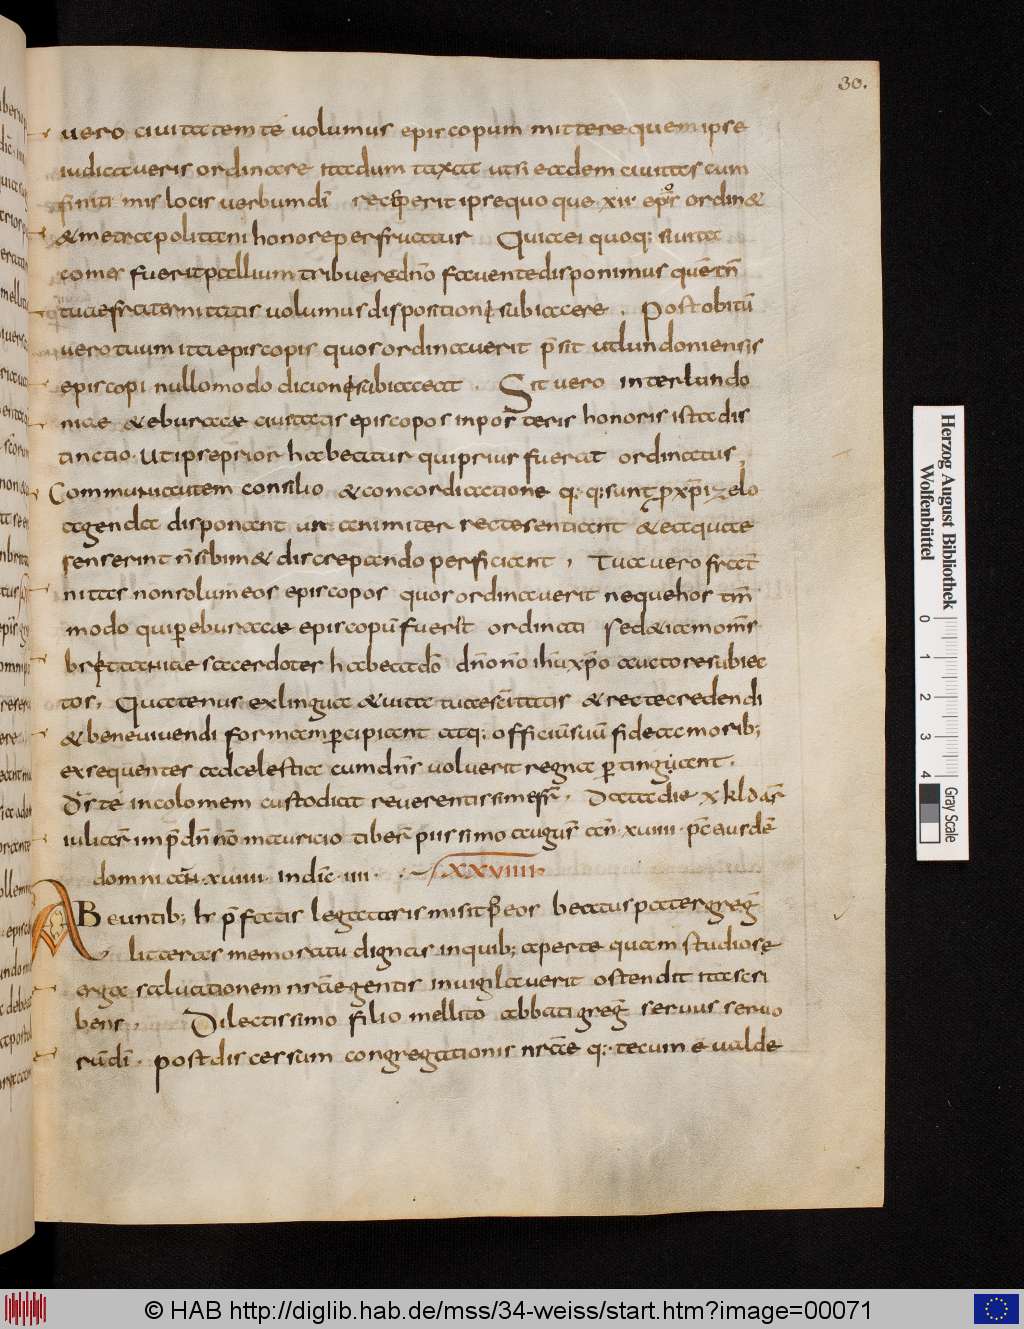 30.
uero ciuitatem te uolumus episcopum mittere quem ipse
iudicaueris ordinare ita dum taxat ut si eadem ciuitas cum
finiti mis locis uerbum dī receperit ipse quoque xii ep̄s ordin&
& metrapolitani honore perfruatur Quia ei quoq; siuita
comes fuerit pallium tribuere dn̄o fauente disponimus quē tn̄
tuae fraternitatis uolumus dispositionę subiacere . Post obitū
uero tuum ita episcopis quos ordinauerit p̄sit ut lundoniensis
episcopi nullo modo dicionę subiaceat . Sit uero inter lundo
niae & eburacae ciuitatis episcopos in posteris honoris ista dis
tinctio. Ut ipse prior habeatur qui prius fuerat ordinatus,
Communi autem consilio & concordi actione q:q: sunt p xp̄i zelo
agenda disponant unanimiter recte sentiant & ea quae
senserint n̄ sibim& discrepando perficiant , Tua uero frat̄
nitas non solum eos episcopos quos ordinauerit neque hos tm̄
modo qui p eburacae episcopū fuerit ordinati sed &iam om̄s
brętaniae sacerdotes habeat adō dn̄o n̄o ih̄u xp̄o auctore subiec
tos, Quatenus ex lingua & uita tuae scītatis & recte credendi
& bene uiuendi formam p̄cipiant atq: officiū suū fide ac morib;
exsequentes ad caelestia cum dn̄s uoluerit regna p̄tinguant.
Ds̄ te incolomem custodiat reuerentissime fr̄. Data die x kl̄das
iuliar̄ imp̄ dn̄ n̄o mauricio tiber̄ piissimo augus̄ an̄ xuiiii p̄c eius dē
domni an̄ xuiiii indic̄ iiii. XXVIIII
ABeuntib; hs p̄ fatis legatariis misit p̄ eos beatus pater greḡ
litteras memoratu dignas in quib; aperte quam studiosę
erga saluationem nr̄ae gentis inuigilauerit ostendit ita scri
bens, Dilectissimo filio mellito abbati greḡ seruus seruo
rū dī. post discessum congregationis nr̄ae q: tecum ē ualde
Herzog August Bibliothek
Wolfenbüttel
0 1 2 3 4
Gray Scale
© HAB http://diglib.hab.de/mss/34-weiss/start.htm?image=00071